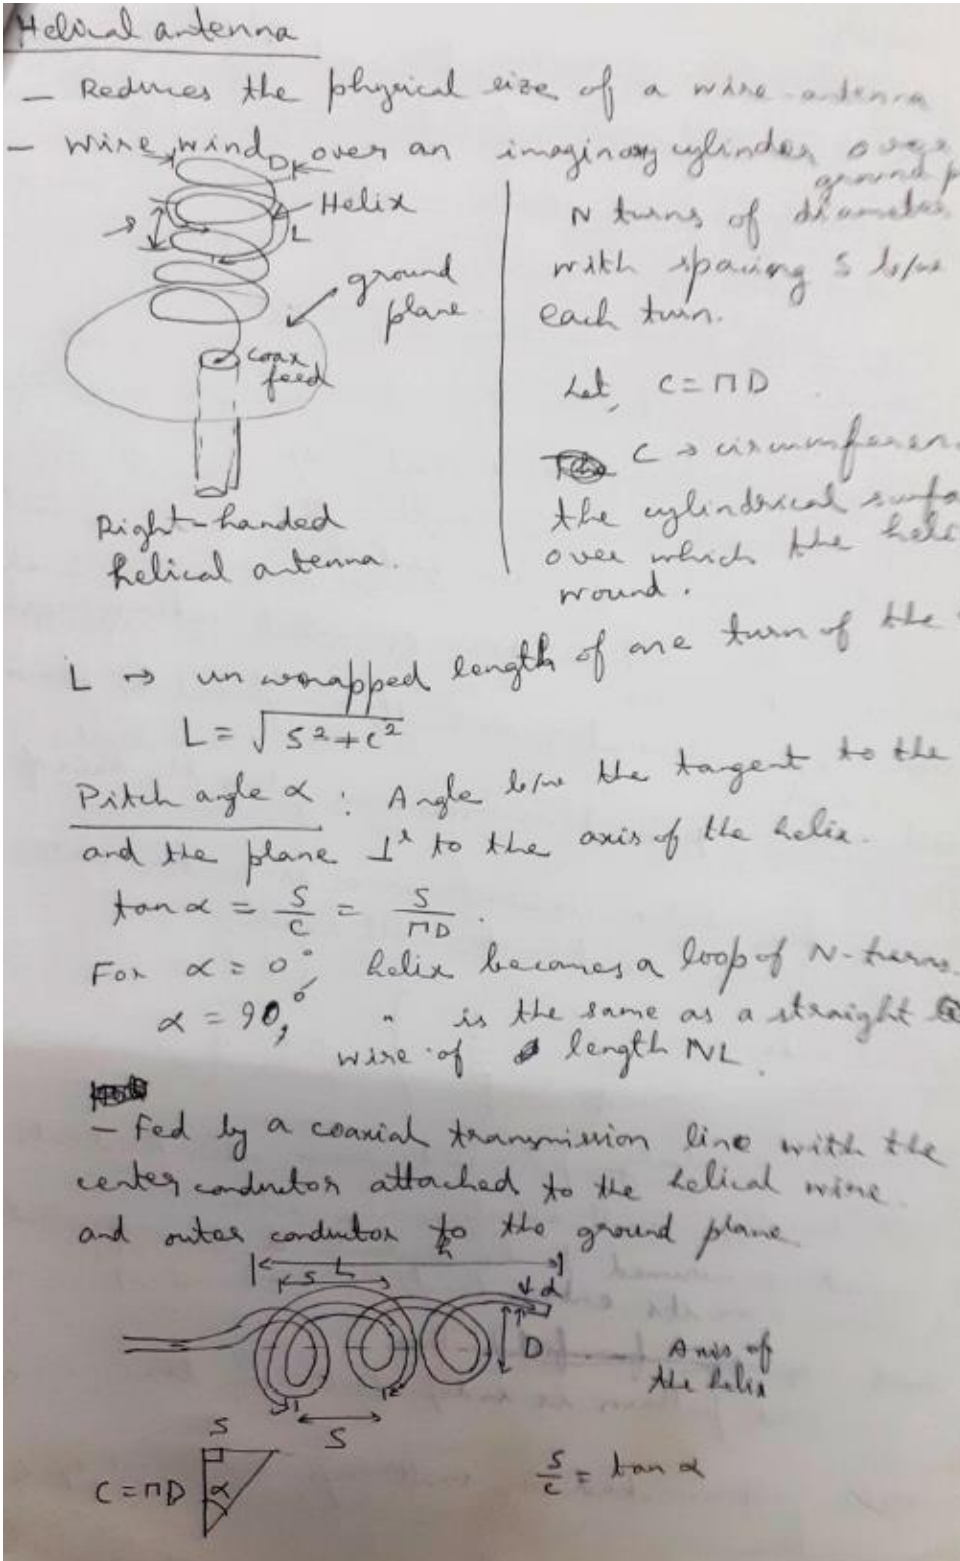 Helical antenna
- Reduces the physical size of a wire antenna
- Wire wind over an imaginary cylinder over
ground
D
Helix
L
S
ground
plane
coax
feed
Right-handed
helical antenna.
N turns of diameter
with spacing S b/w
each turn.
Let, C = ΠD
C → circumferen
the cylindrical surfa
over which the heli
wound.
L → unwrapped length of one turn of the
L = √S²+C²
Pitch angle α : Angle b/w the tangent to the
and the plane ⊥r to the axis of the helix.
tan α = S/C = S/ΠD.
For α = 0°, helix becomes a loop of N-turns.
α = 90°, " is the same as a straight
wire of length NL.
- Fed by a coaxial transmission line with the
center conductor attached to the helical wire
and outer conductor to the ground plane
L
S
d
D
Axis of
the helix
1
2
S
S
C = ΠD
α
S/C = tan α